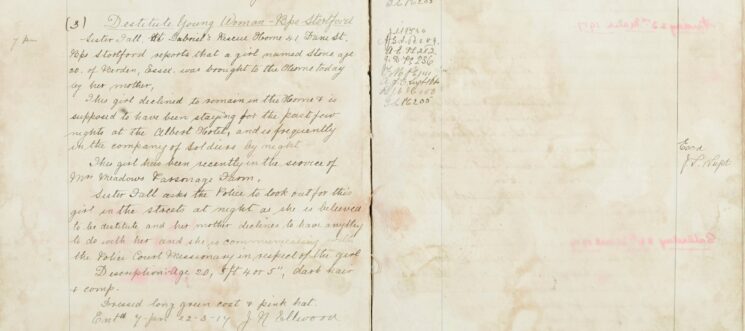 (3) Destitute Young Woman - Bps Stortford
7 pm
Sister Fall, St Gabriel's Rescue Home 41 Lane St,
Bps Stortford reports that a girl named Stone age
20, of Berden, Essex. was brought to the Home today
by her mother,
This girl declined to remain in the Home & is
supposed to have been staying for the past few
nights at the Albert Hotel, and is frequently
in the company of Soldiers by night
This girl has been recently in the service of
Mrs Meadows Parsonage Farm,
Sister Fall asks the Police to look out for this
girl in the streets at night as she is believed
to be destitute and her mother declines to have anything
to do with her and she is communicating
the Police Court Missionary in respect of the girl
Description Age 20, 5ft 4 or 5", dark hair
& comp.
Dressed long green coat & pink hat.
Entd 7-pm 22-3-17 J N Ellwood
PC 200
PC 236
PC 200
Exd
Supt